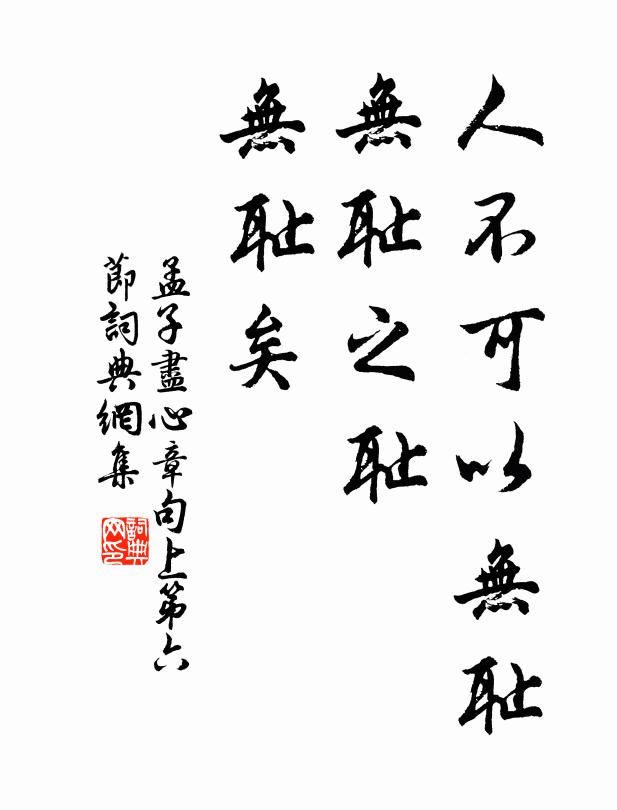 人不可以無恥
無恥之恥
無恥矣
孟子盡心章句上第六
節詞典網集
詞典
网印